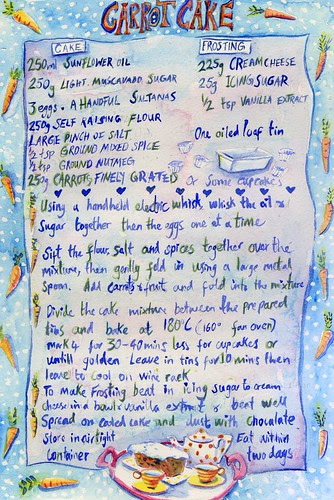 CARROT CAKE
CAKE
250ml SUNFLOWER OIL
250g LIGHT MUSCAVADO SUGAR
3 eggs. A HANDFUL SULTANAS
250g SELF RAISING FLOUR
LARGE PINCH OF SALT
1/2 tsp GROUND MIXED SPICE
1/2 tsp GROUND NUTMEG
250g CARROTS FINELY GRATED
FROSTING
225g CREAM CHEESE
25g ICING SUGAR
1/2 tsp VANILLA EXTRACT
One oiled loaf tin
Or some cupcakes
Using a handheld electric whisk, whisk the oil &
Sugar together then the eggs one at a time
Sift the flour, salt and spices together over the
mixture, then gently fold in using a large metal
spoon. Add carrots & fruit and fold into the mixture
Divide the cake mixture between the prepared
tins and bake at 180°C (160° fan oven)
mark 4 for 30-40 mins less for cupcakes or
untill golden Leave in tins for 10 mins then
leave to cool on wire rack
To make Frosting beat in icing sugar to cream
cheese in a bowl & vanilla extract & beat well
Spread on cooled cake and dust with chocolate
Store in airtight
container
Eat within
two days